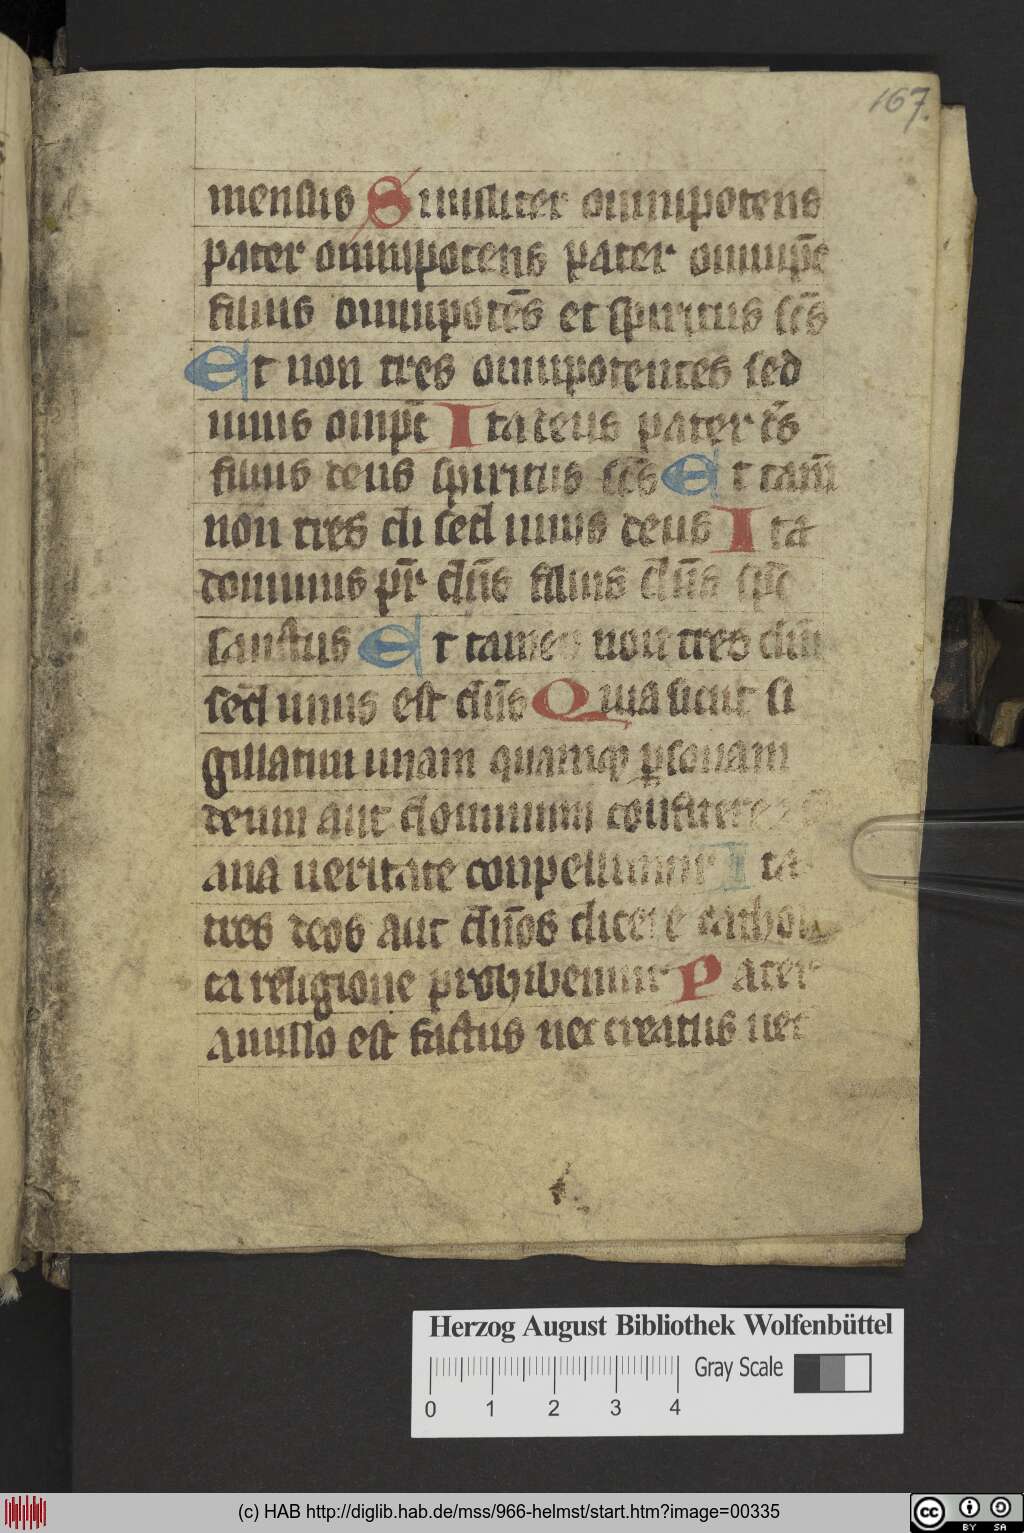 167.
mensus Similiter omnipotens
pater omnipotens pater omnip̄t
filius omnipotēs et spiritus sc̄s
Et non tres omnipotentes sed
unus omp̄t Ita deus pater d̄s
filius deus spiritus sc̄s Et tam̄
non tres dii sed unus deus Ita
dominus pr̄ dn̄s filius dn̄s sp̄c
sanctus Et tamen non tres dn̄i
sed unus est dn̄s Quia sicut si
gillatim unam quamq ꝑsonam
deum aut dominum confitere
ana ueritate conpellimur Ita
tres deos aut dn̄os dicere catholi
ca religione prohibemur Pater
a nullo est factus nec creatus nec
Herzog August Bibliothek Wolfenbüttel
Gray Scale
0 1 2 3 4
(c) HAB http://diglib.hab.de/mss/966-helmst/start.htm?image=00335
CC BY SA